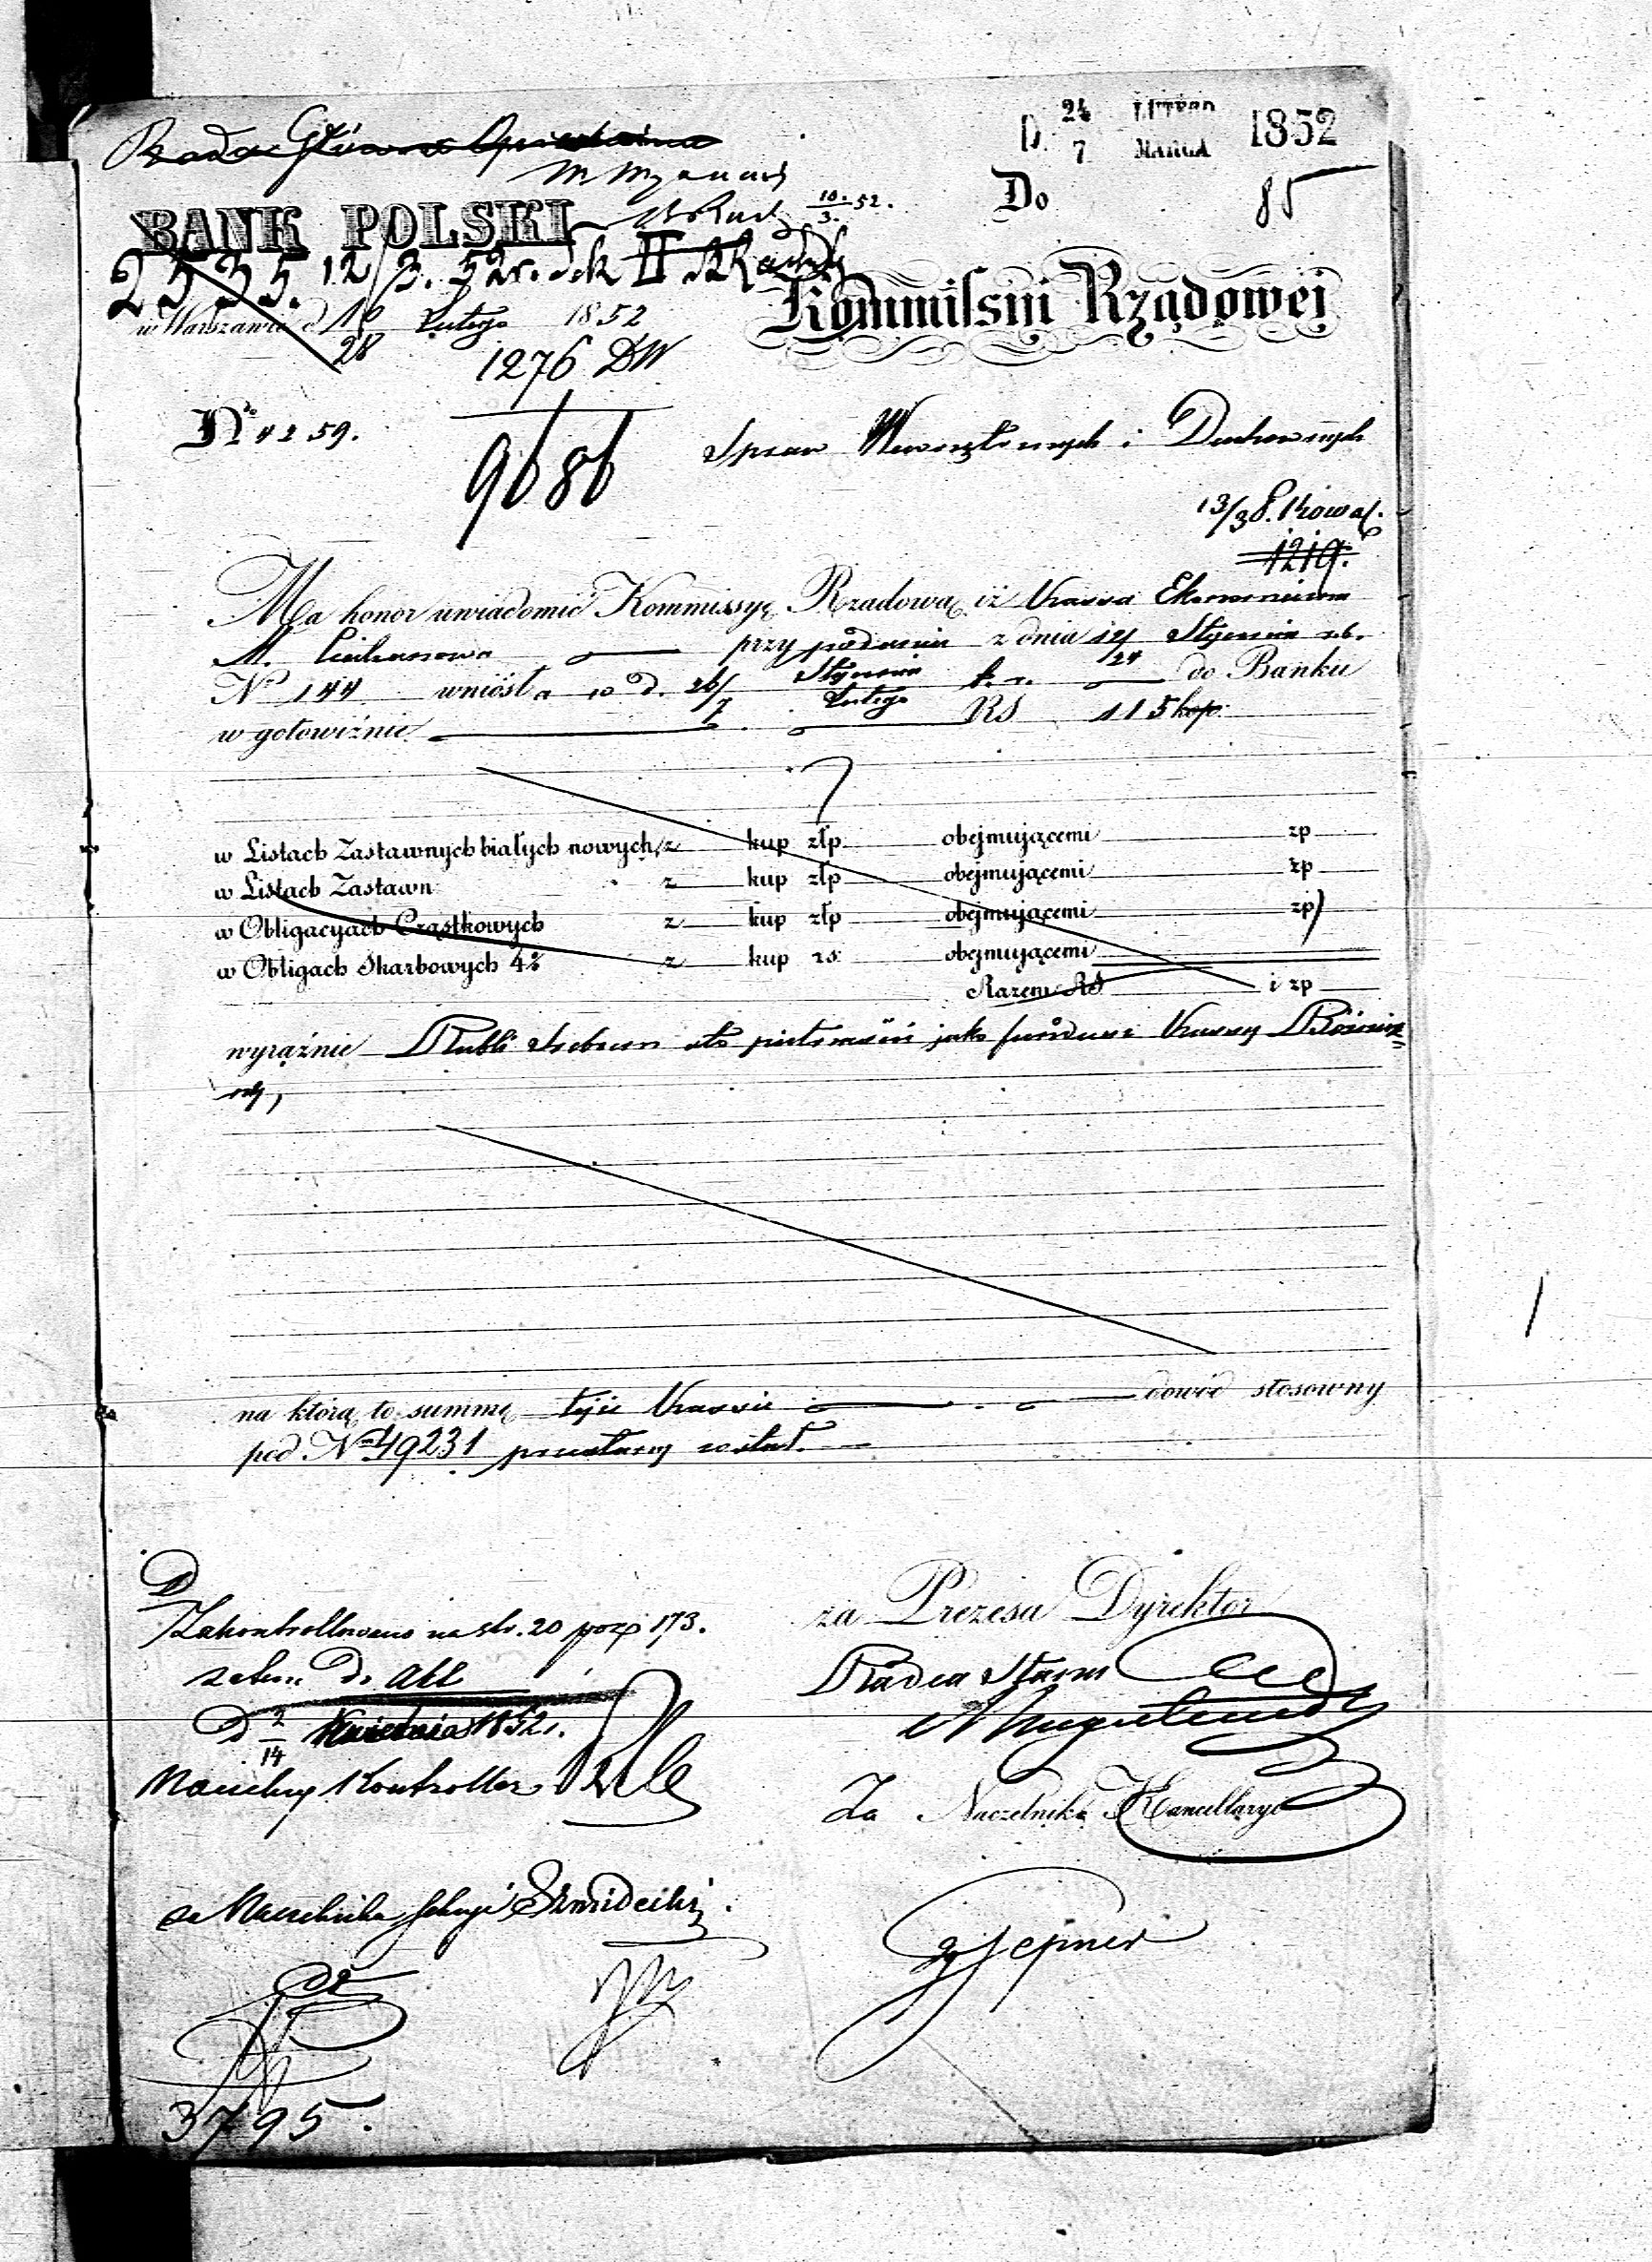 Rada Główna Opiekuńcza
D. 24 LUTEGO 1852
7 MARCA
10/3. 52.
Do
85
BANK POLSKI
2535. 12/3. 52 r.
Kommissyi Rządowej
w Warszawie d 16 Lutego 1852
28
1276 DW
No 4259.
9686
Spraw Wewnętrznych i Duchownych
13/3 8. Kowal.
1219.
Ma honor uwiadomić Kommissyę Rządową, iż Kassa Ekonomiczna
M. Ciechanowa przy podaniu z dnia 12/24 Stycznia r.b.
No 144 wniosła w d. 26/7 Stycznia/Lutego b. r. do Banku
w gotowiźnie RS 115 kop.
w Listach Zastawnych białych nowych, z kup złp obejmującemi zp
w Listach Zastawn z kup złp obejmującemi zp
w Obligacyach Cząstkowych z kup złp obejmującemi zp
w Obligach Skarbowych 4% z kup rs: obejmującemi
Razem RS i zp
wyraźnie Rubli srebrem sto piętnaście jako fundusz Kassy
na którą to summę tejże Kassie dowód stosowny
pod No 49231 przesłany został.
za Prezesa Dyrektor
Zakontrollowano na str. 20 poz. 173.
Radca Stanu
D 2/14 Kwietnia 1852 r.
Naczelny Kontroller
Za Naczelnika Kancellaryi
za Naczelnika Sekcyi
3795.